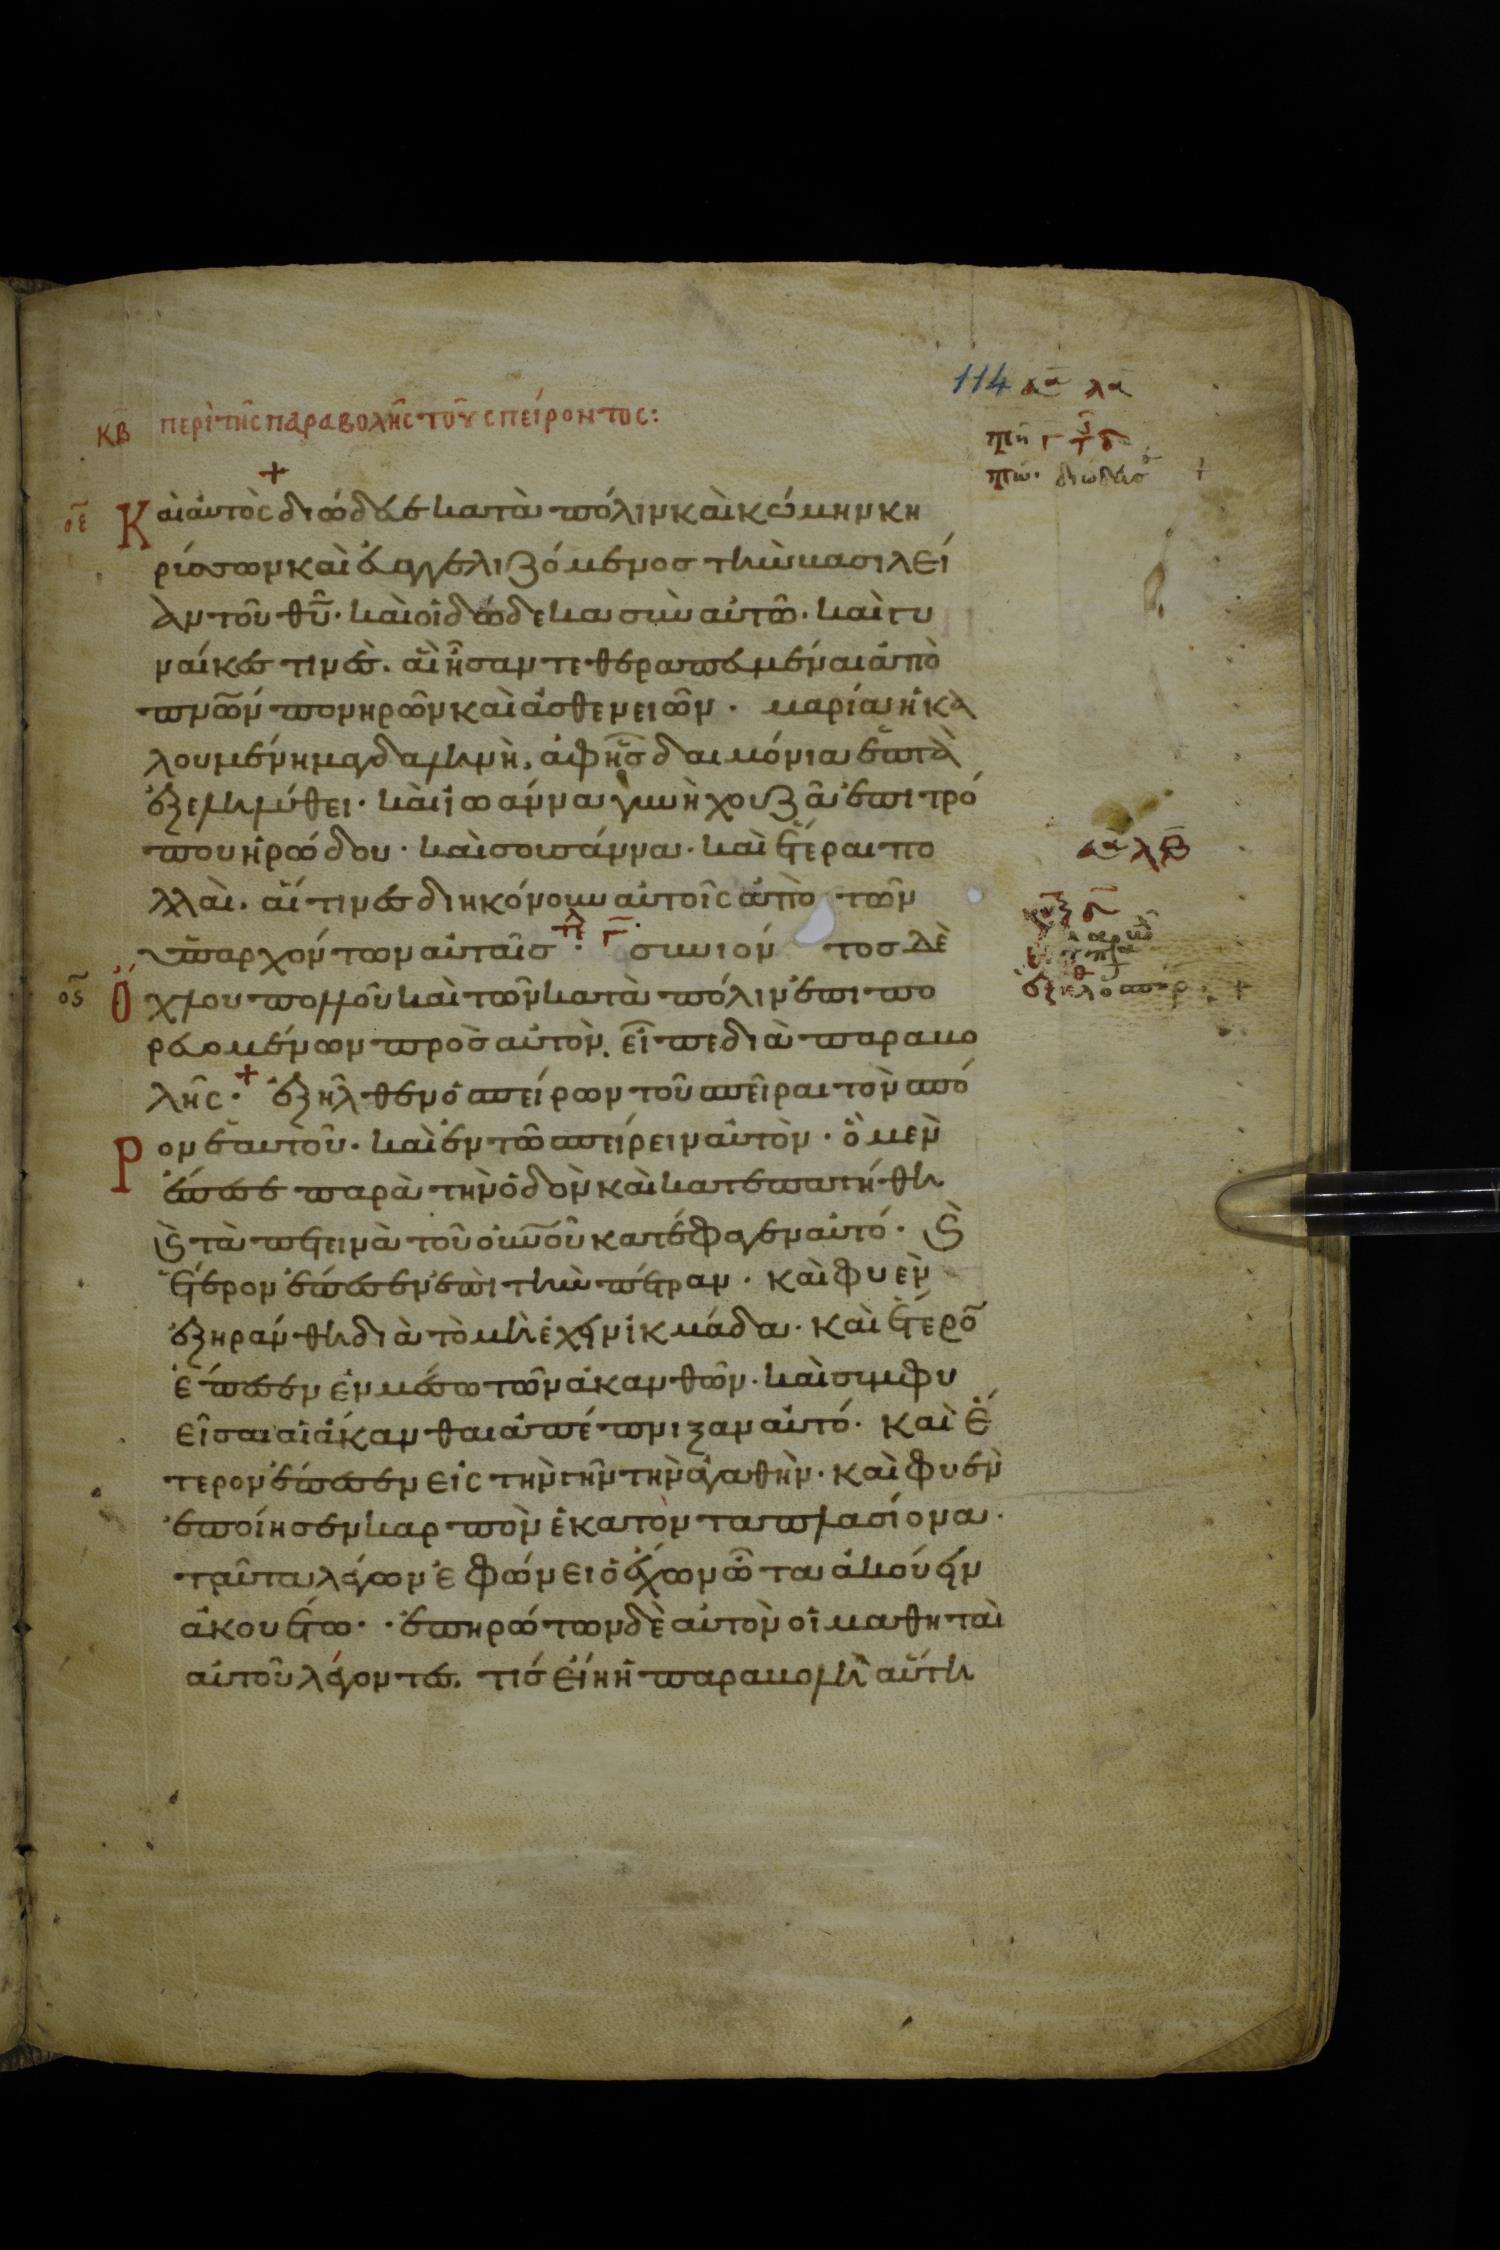 114 λα
κβ περὶ τῆς παραβολῆς τοῦ σπείροντος:
οε Καὶ αὐτὸς διώδευε κατὰ πόλιν καὶ κώμην κη
ρύσσων καὶ εὐαγγελιζόμενος τὴν βασιλεί
αν τοῦ θῦ· καὶ οἱ δώδεκα σὺν αὐτῶ· καὶ γυ
ναίκες τινὲς. αἳ ἦσαν τεθεραπευμέναι ἀπὸ
πνῶν πονηρῶν καὶ ἀσθενειῶν· μαρία ἡ κα
λουμένη μαγδαληνὴ, ἀφ' ἧς δαιμόνια ἑπτὰ
ἐξεληλύθει· καὶ ἰωάννα γυνὴ χουζᾶ ἐπιτρό
που ἡρώδου· καὶ σουσάννα· καὶ ἕτεραι πο
λλαὶ. αἵτινες διηκόνουν αὐτοῖς ἀπὸ τῶν
ὑπαρχόντων αὐταῖς· συνιόντος δὲ
ος ὄχλου πολλοῦ καὶ τῶν κατὰ πόλιν ἐπιπο
ρευομένων πρὸς αὐτὸν, εἶπε διὰ παραβο
λῆς· + ἐξῆλθεν ὁ σπείρων τοῦ σπεῖραι τὸν σπό
ρον ἑαυτοῦ· καὶ ἐν τῶ σπείρειν αὐτὸν· ὃ μὲν
ἔπεσε παρὰ τὴν ὁδὸν καὶ κατεπατήθη
ϗ τὰ πετεινὰ τοῦ οὐνοῦ κατέφαγεν αὐτό· ϗ
ἕτερον ἔπεσεν ἐπὶ τὴν πέτραν· καὶ φυὲν
ἐξηράνθη διὰ τὸ μὴ ἔχειν ἰκμάδα· καὶ ἕτερο̄
ἔπεσεν ἐν μέσω τῶν ἀκανθῶν· καὶ συμφυ
εῖσαι αἱ ἄκανθαι ἀπέπνιξαν αὐτό· καὶ ἕ
τερον ἔπεσεν εἰς τὴν γῆν τὴν ἀγαθὴν· καὶ φυὲν
ἐποίησεν καρπὸν ἑκατονταπλασίονα·
ταῦτα λέγων ἐφώνει ὁ ἔχων ὦτα ἀκούειν
ἀκουέτω· ἐπηρώτων δὲ αὐτὸν οἱ μαθηταὶ
αὐτοῦ λέγοντες. τίς εἴη ἡ παραβολὴ αὕτη